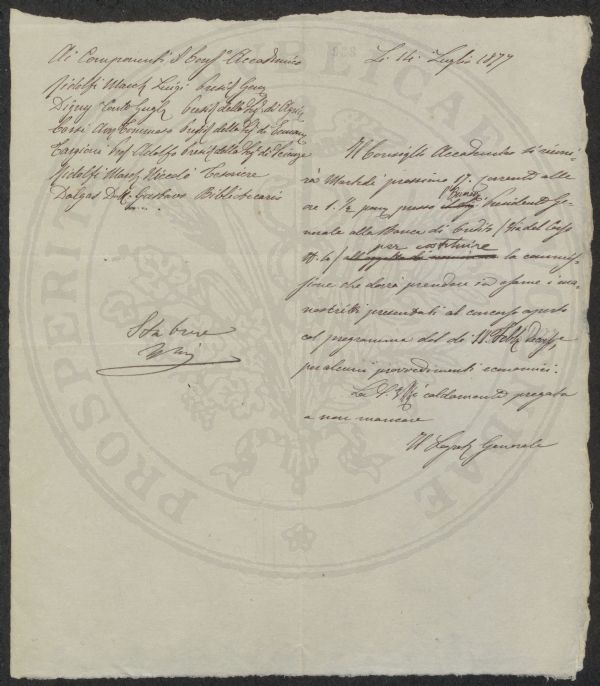 Ai Componenti il Consº Accademico
Li 14 Luglio 1877
Ridolfi March Luigi Presid Gen
Digny Conte Guglº Presid della Sez di Agric
Corsi Avv Tommaso Presid della Sez di Econom
Targioni Prof Adolfo Presid della Sez di Scienze
Ridolfi March Niccolò Tessiere
Dalgas D. Gustavo Bibliotecario
Il Consiglio Accademico si riuni-
rà Martedì prossimo 17. corrente alle
ore 1. ½ pom presso il Presidente Ge-
nerale alla Banca di Credito (Via del Corso
per costituire
N. 6) all'oggetto di nominare la commis-
sione che dovrà prendere in esame i ma-
noscritti presentati al concorso aperto
col programma del dì Febbº
per alcuni provvedimenti economici.
La S. V. è caldamente pregata
a non mancare
Il Segret Generale
PROSPERITATI PUBLICAE